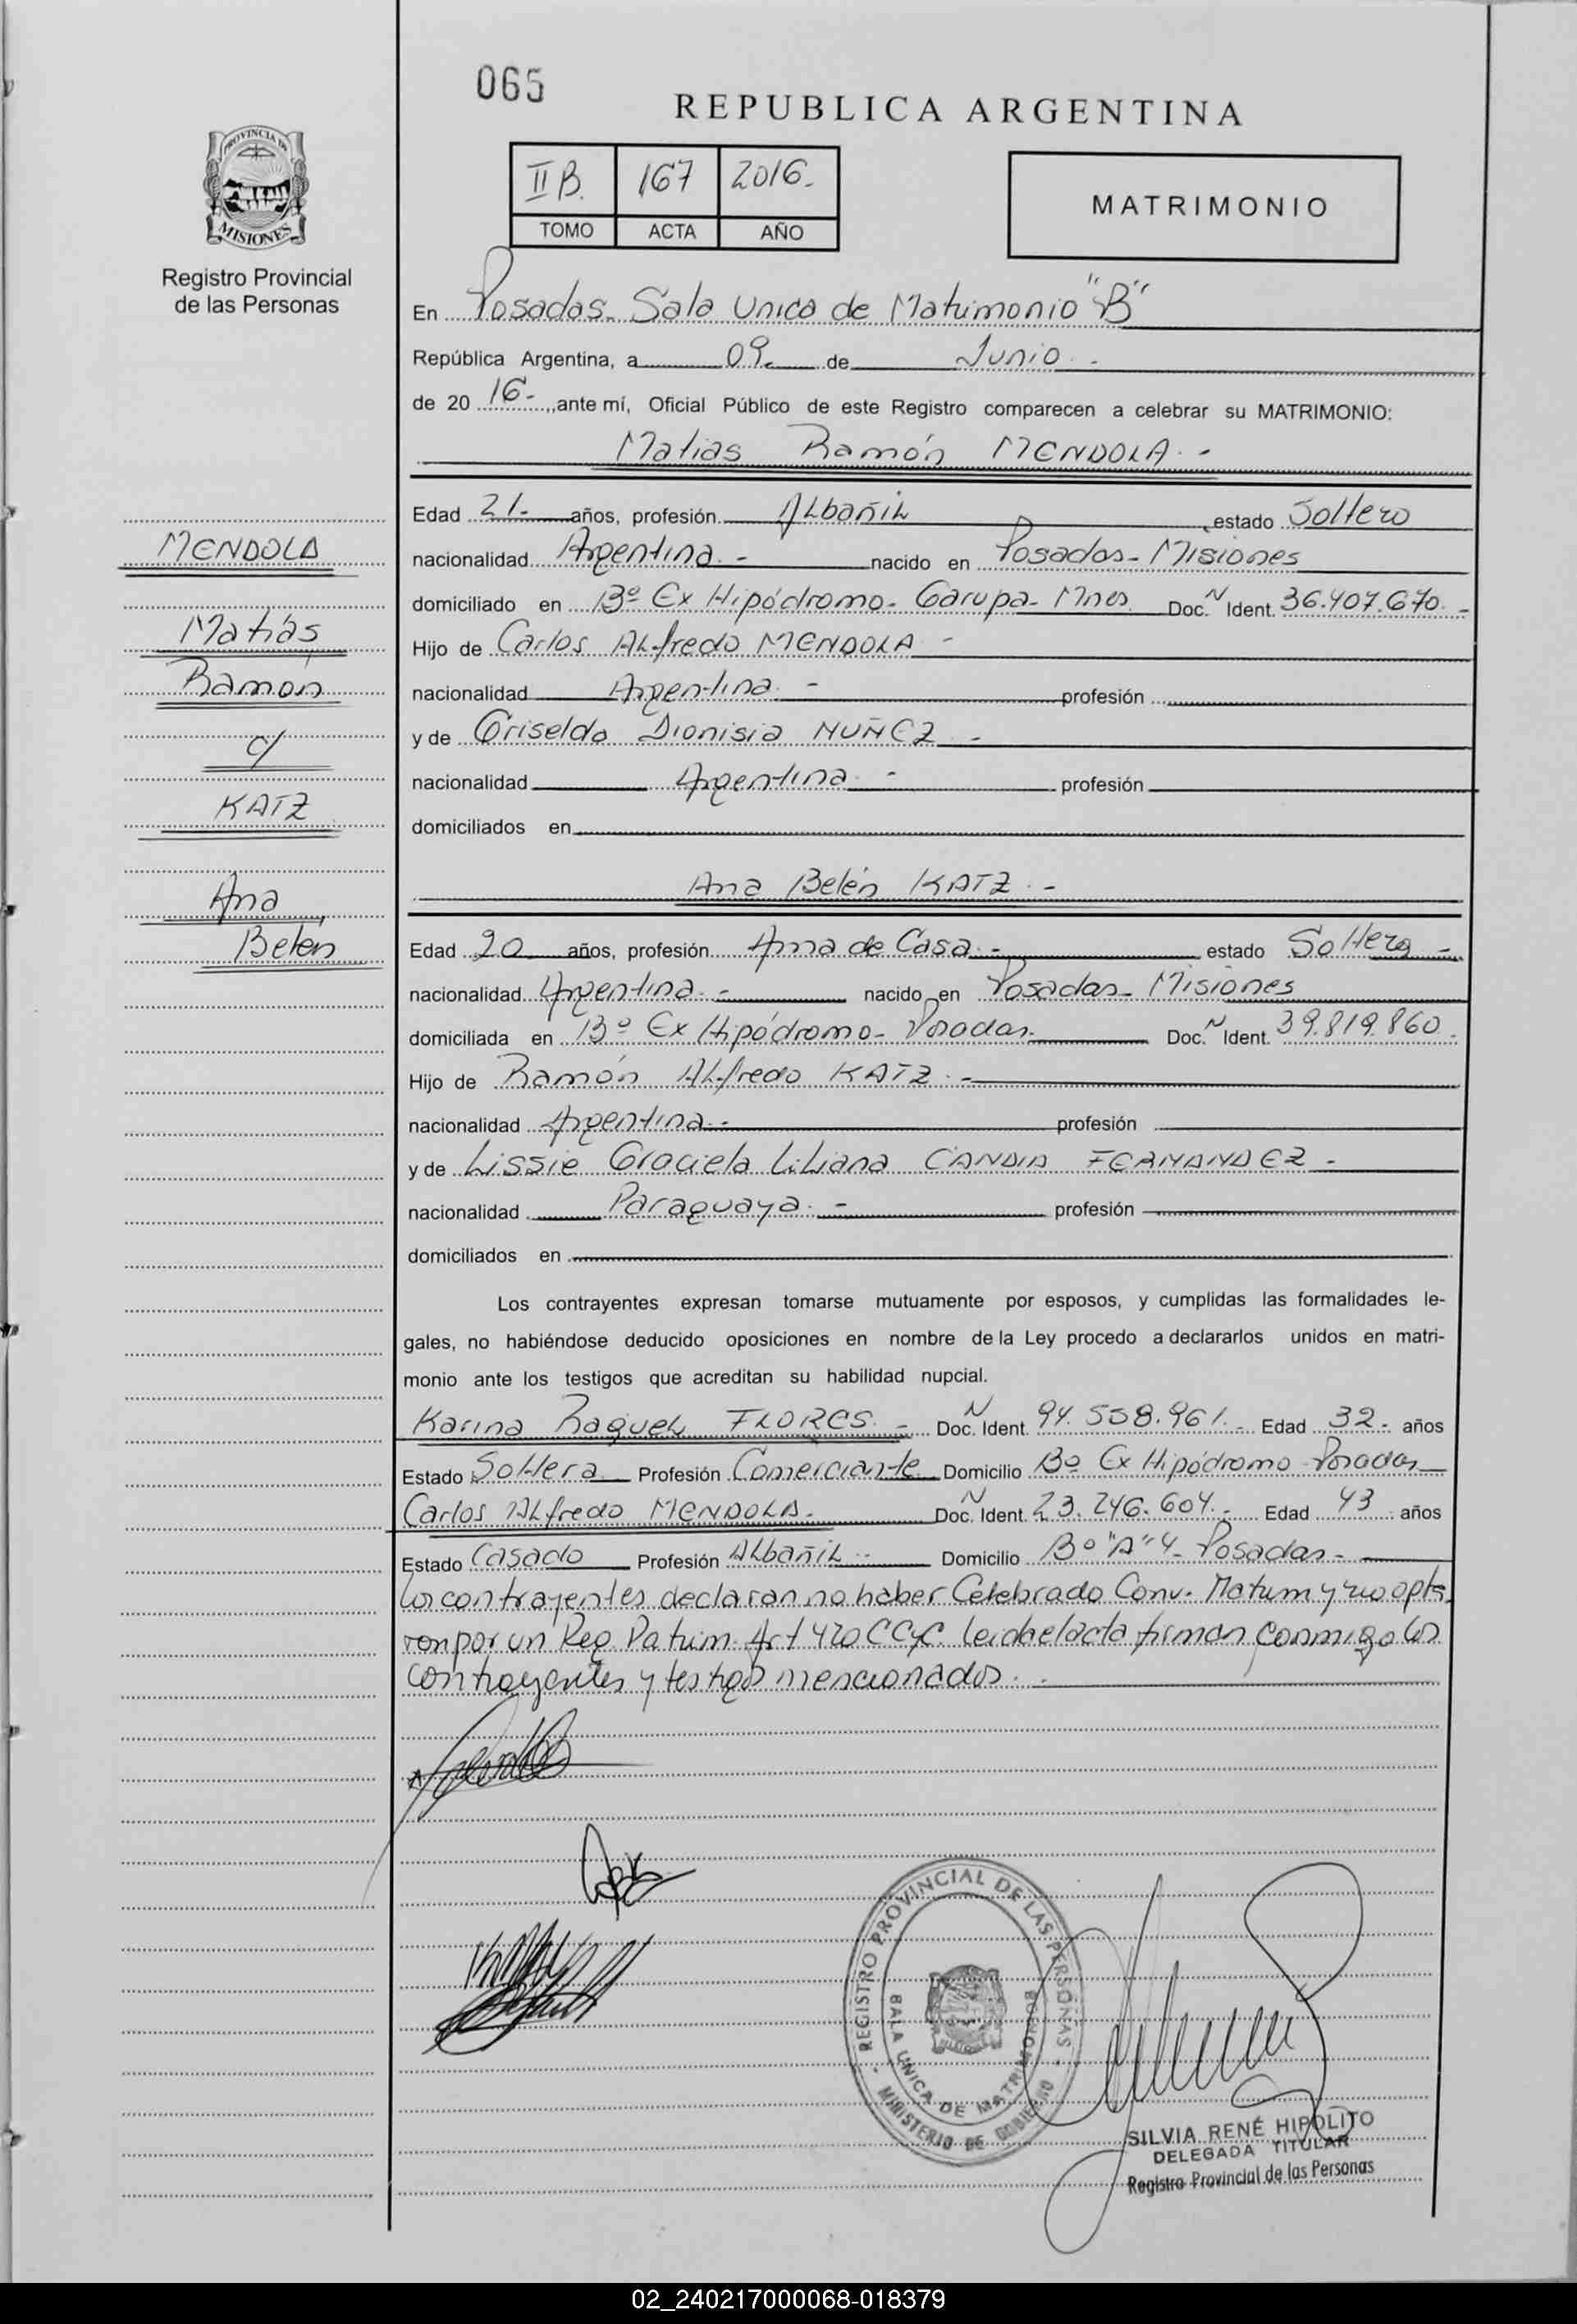 065
REPUBLICA ARGENTINA
PROVINCIA DE
MISIONES
Registro Provincial
de las Personas
II B. 167 2016.-
TOMO ACTA AÑO
MATRIMONIO
En Posadas- Sala Unica de Matrimonio "B"
República Argentina, a 09.- de Junio.-
de 20 16.- ,ante mí, Oficial Público de este Registro comparecen a celebrar su MATRIMONIO:
Matias Ramón MENDOLA.-
Edad 21.- años, profesión Albañil estado Soltero
nacionalidad Argentina.- nacido en Posadas- Misiones
domiciliado en Bº Ex Hipódromo- Garupa- Mnes Doc. N Ident. 36.407.670.-
Hijo de Carlos Alfredo MENDOLA.-
nacionalidad Argentina.- profesión
y de Griselda Dionisia NUÑEZ.-
nacionalidad Argentina.- profesión
domiciliados en
Ana Belén KATZ.-
Edad 20 años, profesión Ama de Casa.- estado Soltera-
nacionalidad Argentina.- nacido en Posadas- Misiones
domiciliada en Bº Ex Hipódromo- Posadas- Doc. N Ident. 39.819.860.
Hijo de Ramón Alfredo KATZ.-
nacionalidad Argentina.- profesión
y de Lissie Graciela Liliana CANDIA FERNANDEZ-
nacionalidad Paraguaya.- profesión
domiciliados en
MENDOLA
Matías
Ramón
c/
KATZ
Ana
Belén
Los contrayentes expresan tomarse mutuamente por esposos, y cumplidas las formalidades le-
gales, no habiéndose deducido oposiciones en nombre de la Ley procedo a declararlos unidos en matri-
monio ante los testigos que acreditan su habilidad nupcial.
Karina Raquel FLORES.- Doc. N Ident. 94.558.961.- Edad 32.- años
Estado Soltera Profesión Comerciante Domicilio Bº Ex Hipódromo Posadas
Carlos Alfredo MENDOLA. Doc. N Ident. 23.246.604.- Edad 43 años
Estado Casado Profesión Albañil.- Domicilio Bº "A" 4- Posadas-
Los contrayentes declaran no haber Celebrado Conv. Matrim y no opta
ron por un Reg Patrim. Art 420 CCyC. Leida el acta firman conmigo los
contrayentes y testigos mencionados.-
REGISTRO PROVINCIAL DE LAS PERSONAS
SALA UNICA DE MATRIMONIOS
MINISTERIO DE GOBIERNO
SILVIA RENÉ HIPOLITO
DELEGADA TITULAR
Registro Provincial de las Personas
02_240217000068-018379